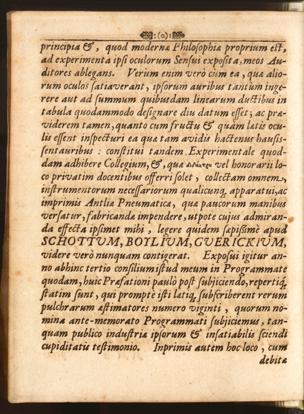 :(o):
principia &, quod moderna Philosophia proprium est,
ad experimenta ipsi oculorum Sensui exposita, meos Au-
ditores ablegans. Verum enim verò cum ea, quæ alio-
rum oculos satiaverant, ipsorum auribus tantùm inge-
rere aut ad summum quibusdam linearum ductibus in
tabula quodammodo designare diu datum esset; ac præ-
viderem tamen, quanto cum fructu & quàm latis ocu-
lis essent inspecturi ea quæ tam avidis hactenus hausis-
sent auribus: constitui tandem Experimentale quod-
dam adhibere Collegium, &, quæ vel honorarii lo-
co privatim docentibus offerri solet, collectam omnem,
instrumentorum necessariorum qualicunq; apparatui, ac
imprimis Antlia Pneumatica, quæ paucorum manibus
versatur, fabricandæ impendere, utpote cujus admiran-
da effecta ipsimet mihi, legere quidem sæpissimè apud
SCHOTTUM, BOYLIUM, GUERICKIUM,
videre verò nunquam contigerat. Exposui igitur an-
no abhinc tertio consilium istud meum in Programmate
quodam, huic Præfationi paulo pòst subjiciendo, repertiq;
statim sunt, qui promptè isti latiq; subscriberent rerum
pulchrarum æstimatores numero viginti, quorum no-
mina ante-memorato Programmati subjiciemus, tan-
quam publico industria ipsorum & insatiabilis sciendi
cupiditatis testimonio. Inprimis autem hoc loco, cum
debitæ